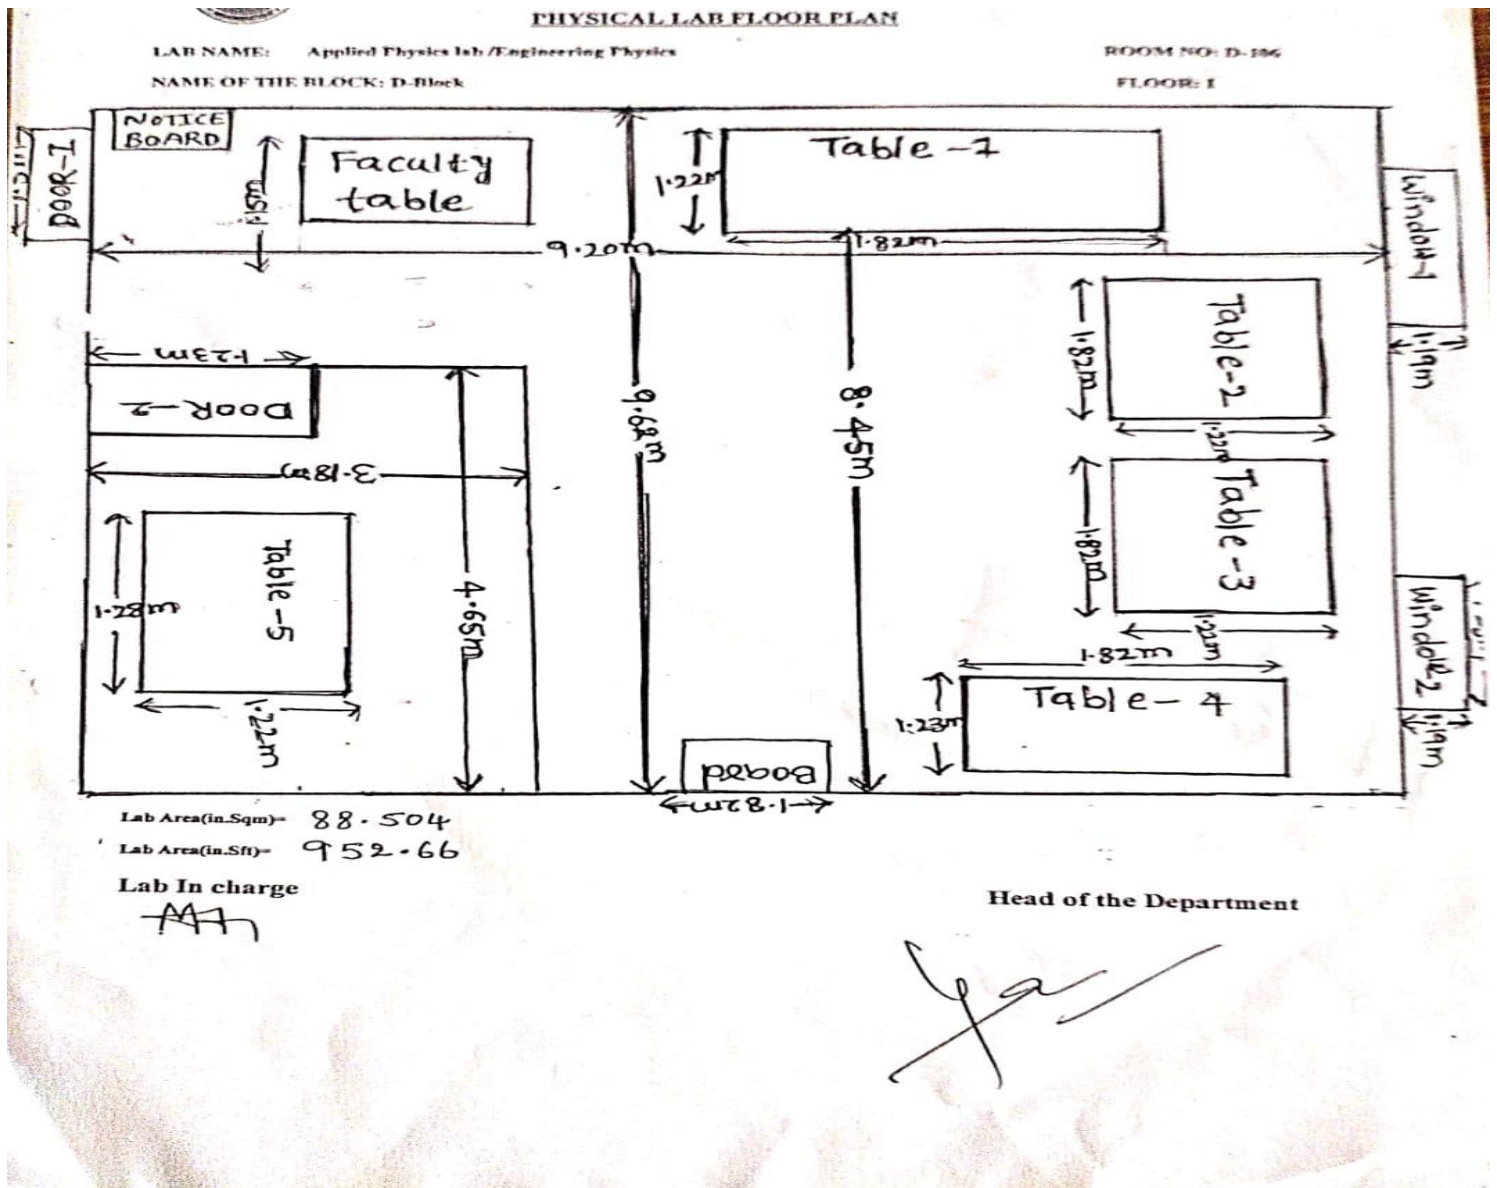 PHYSICAL LAB FLOOR PLAN
LAB NAME: Applied Physics lab /Engineering Physics
ROOM NO: D-106
NAME OF THE BLOCK: D-Block
FLOOR: I
NOTICE
BOARD
DOOR-1
1.15m
Faculty
table
1.22m
Table-1
1.82m
9.20m
Window-1
1.19m
1.82m
Table-2
1.22m
1.23m
DOOR-2
3.18m
9.62m
8.45m
1.82m
Table-3
1.22m
1.28m
Table-5
1.22m
4.65m
1.82m
1.23m
Table-4
Window-2
1.19m
Board
1.82m
Lab Area(in.Sqm)= 88.504
Lab Area(in.Sft)= 952.66
Lab In charge
Head of the Department